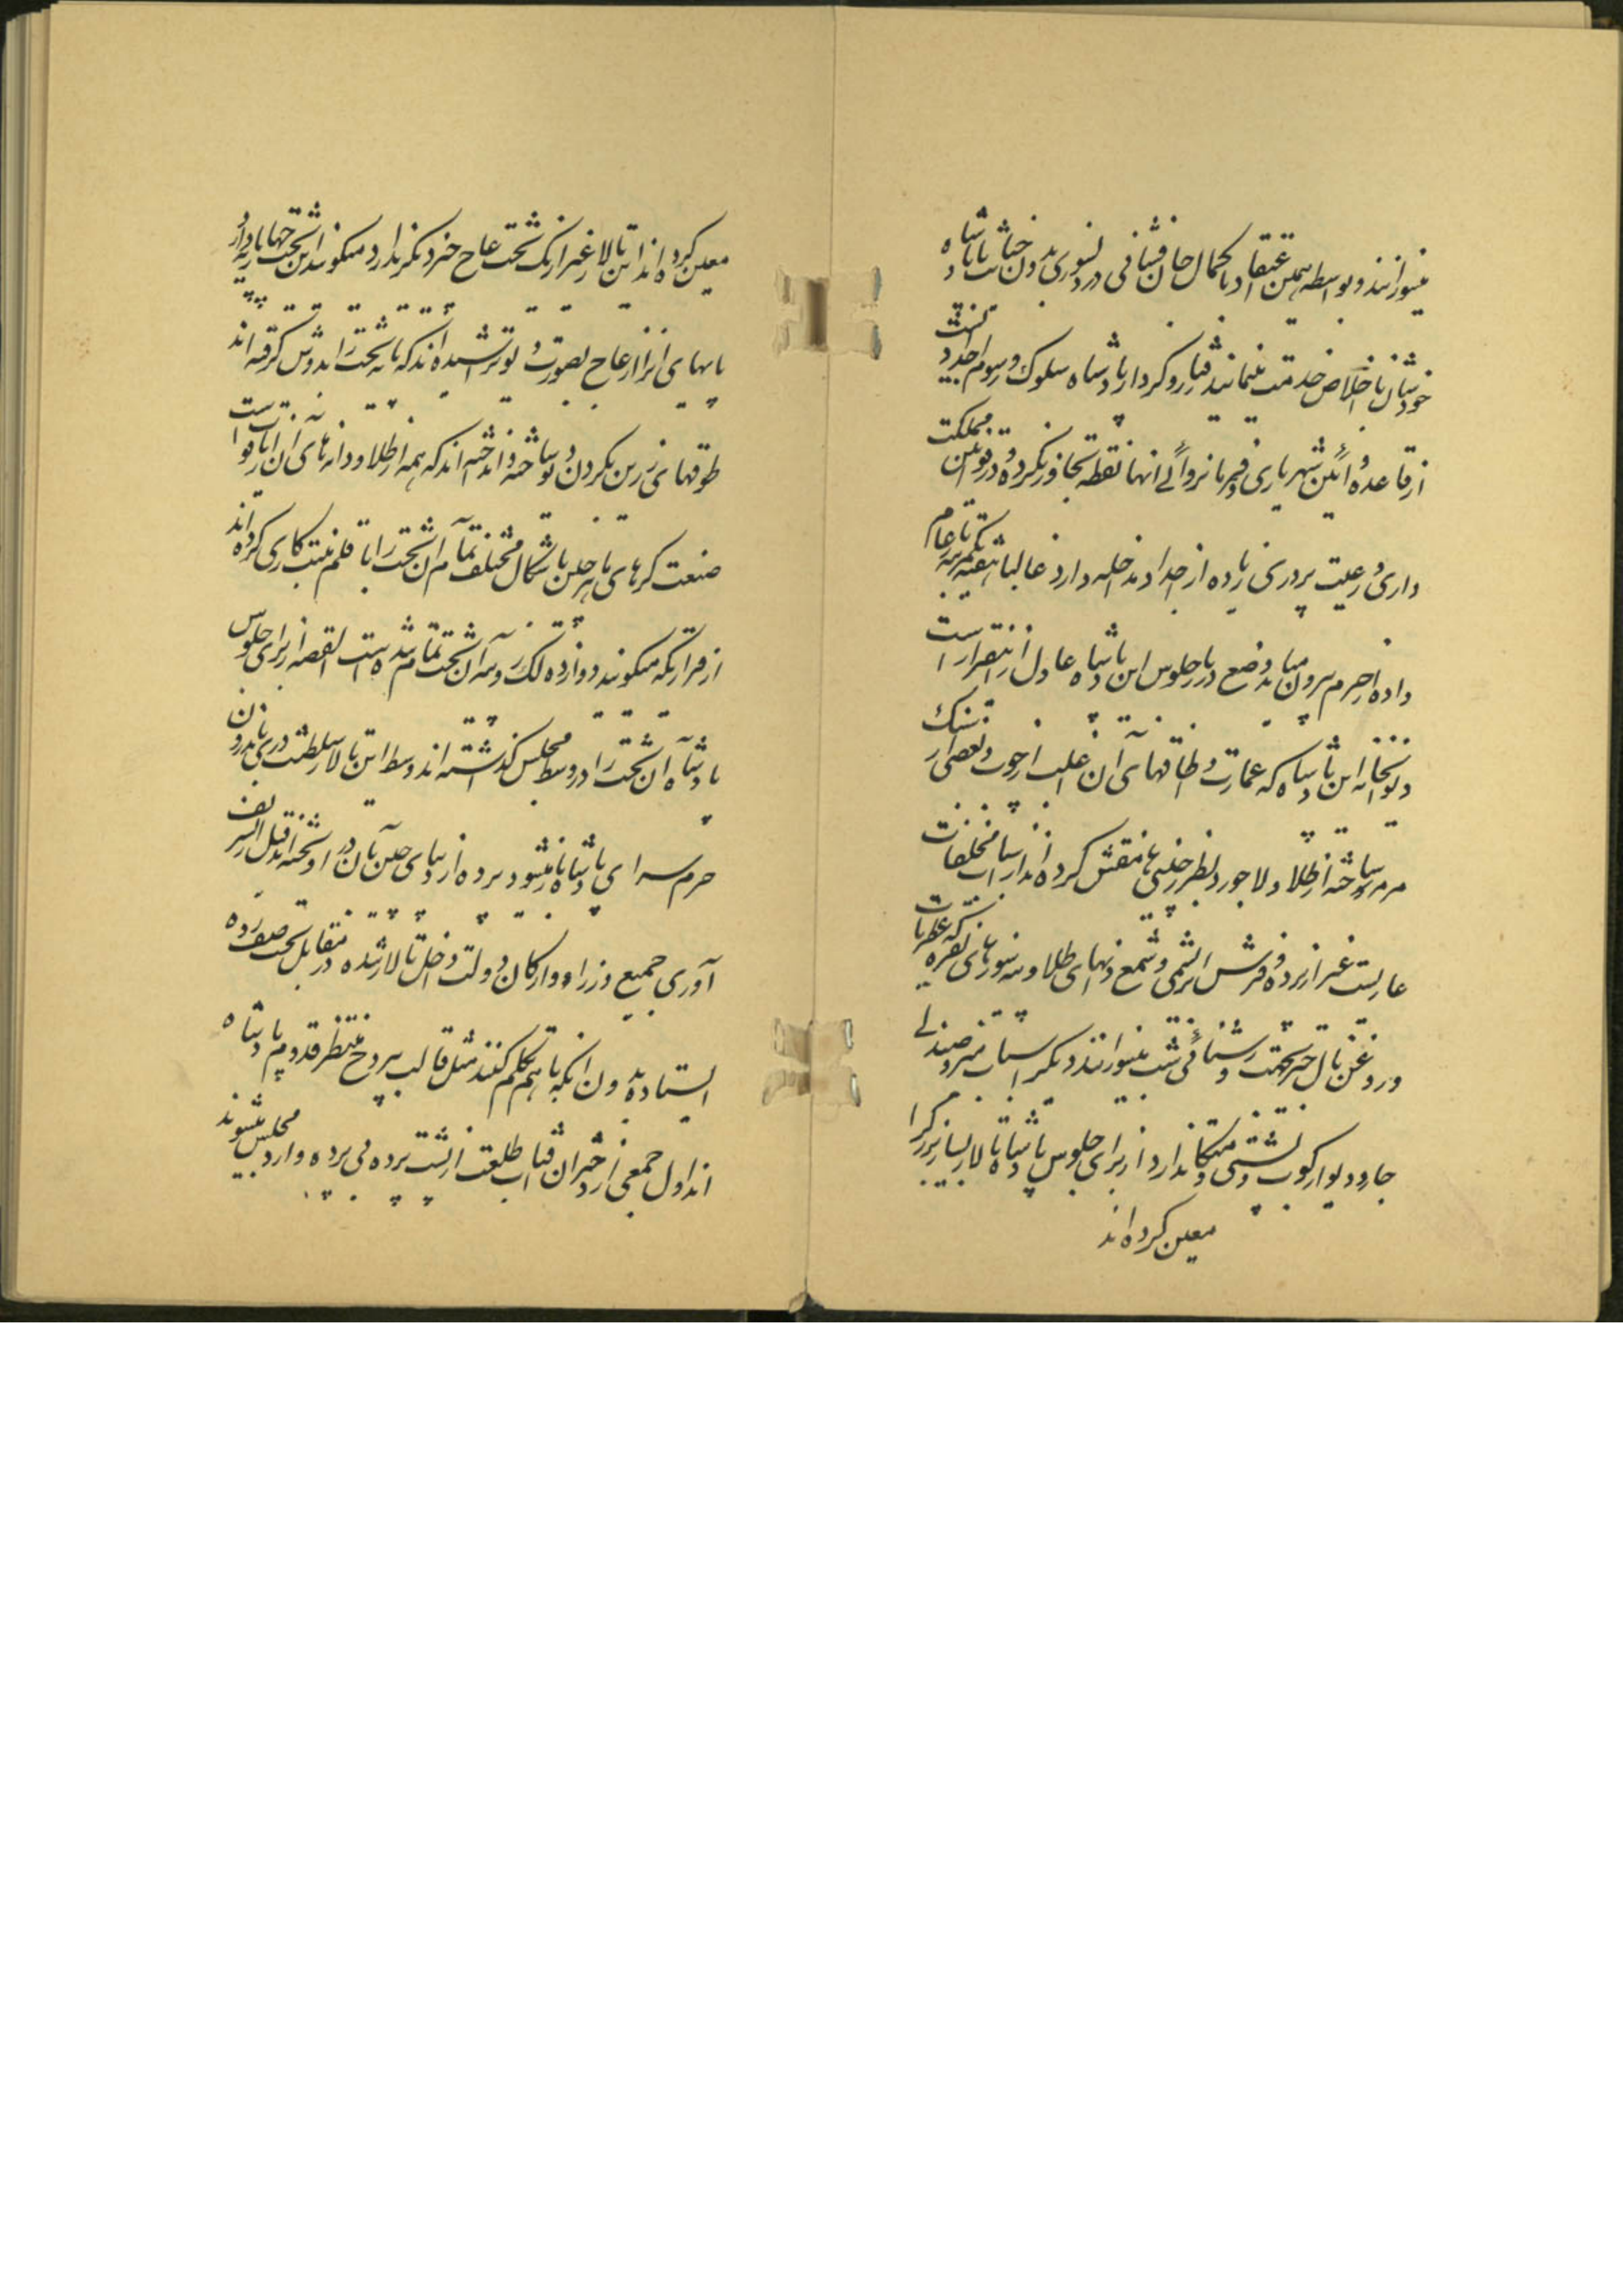 میسوزانند و بواسطه همین اعتقاد با کمال جان فشانی در دلسوزی بدون خباثت با پادشاه
خودشان باخلاص خدمت مینمایند رفتار و کردار پادشاه سلوک و رسوم اجداد
از قاعده و آئین شهریاری و فرمانروائی آنها نقطه تجاوز نکرده و در قوانین مملکت
داری و رعیت پروری زیاده از اجداد مداخله دارد غالبا
داده از حرم بیرون میاید وضع دربار جلوس این پادشاه عادل از اینقرار است
دیوانخانه این پادشاه که عمارت و طاقهای آن اغلب از چوب و بعضی از سنک
مرمر ساخته از طلا و لاجورد بطرز منقش کرده‌اند از اسباب مخلفات
عاریست غیر از پرده و فرش ابریشمی و شمعدانهای طلا و پیه‌سوزهای نقره که
و روغن نال جهت روشنائی شب میسوزانند دیگر اسباب میز و صندلی
جار و دیوارکوب و پشتی و متکا ندارد از برای جلوس پادشاه تالار بسیار بزرگ را
معین کرده‌اند
معین کرده‌اند این تالار غیر از یک تخت عاج چیز دیگر ندارد میگویند این تخت چهار پایه دارد
پایهای آنرا از عاج بصورت تراشیده‌اند که پایه تخت را بدوش گرفته‌اند
طوقهای زرین بگردن ساخته و انداخته‌اند که همه از طلا و دانه‌های آن از یاقوت است
صنعت کرهای ماهر چین باشکال مختلف تمام آن تخت را با قلم منبت کاری کرده‌اند
از قراریکه میگویند دوازده لک روپیه آن تخت تمام شده است القصه از برای جلوس
پادشاه آن تخت را در وسط مجلس گذاشته‌اند وسط این تالار سلطنت دری باندرون
حرم سرای پادشاه باز میشود پرده از دیبای چین بآن در آویخته‌اند قبل از تشریف
آوری جمیع وزراء و ارکان دولت داخل تالار شده در مقابل تخت صف زده
ایستاده بدون آنکه با هم تکلم کنند مثل قالب بیروح منتظر قدوم پادشاه
اند اول جمعی از دختران آفتاب طلعت از پشت پرده بی پرده وارد مجلس میشوند